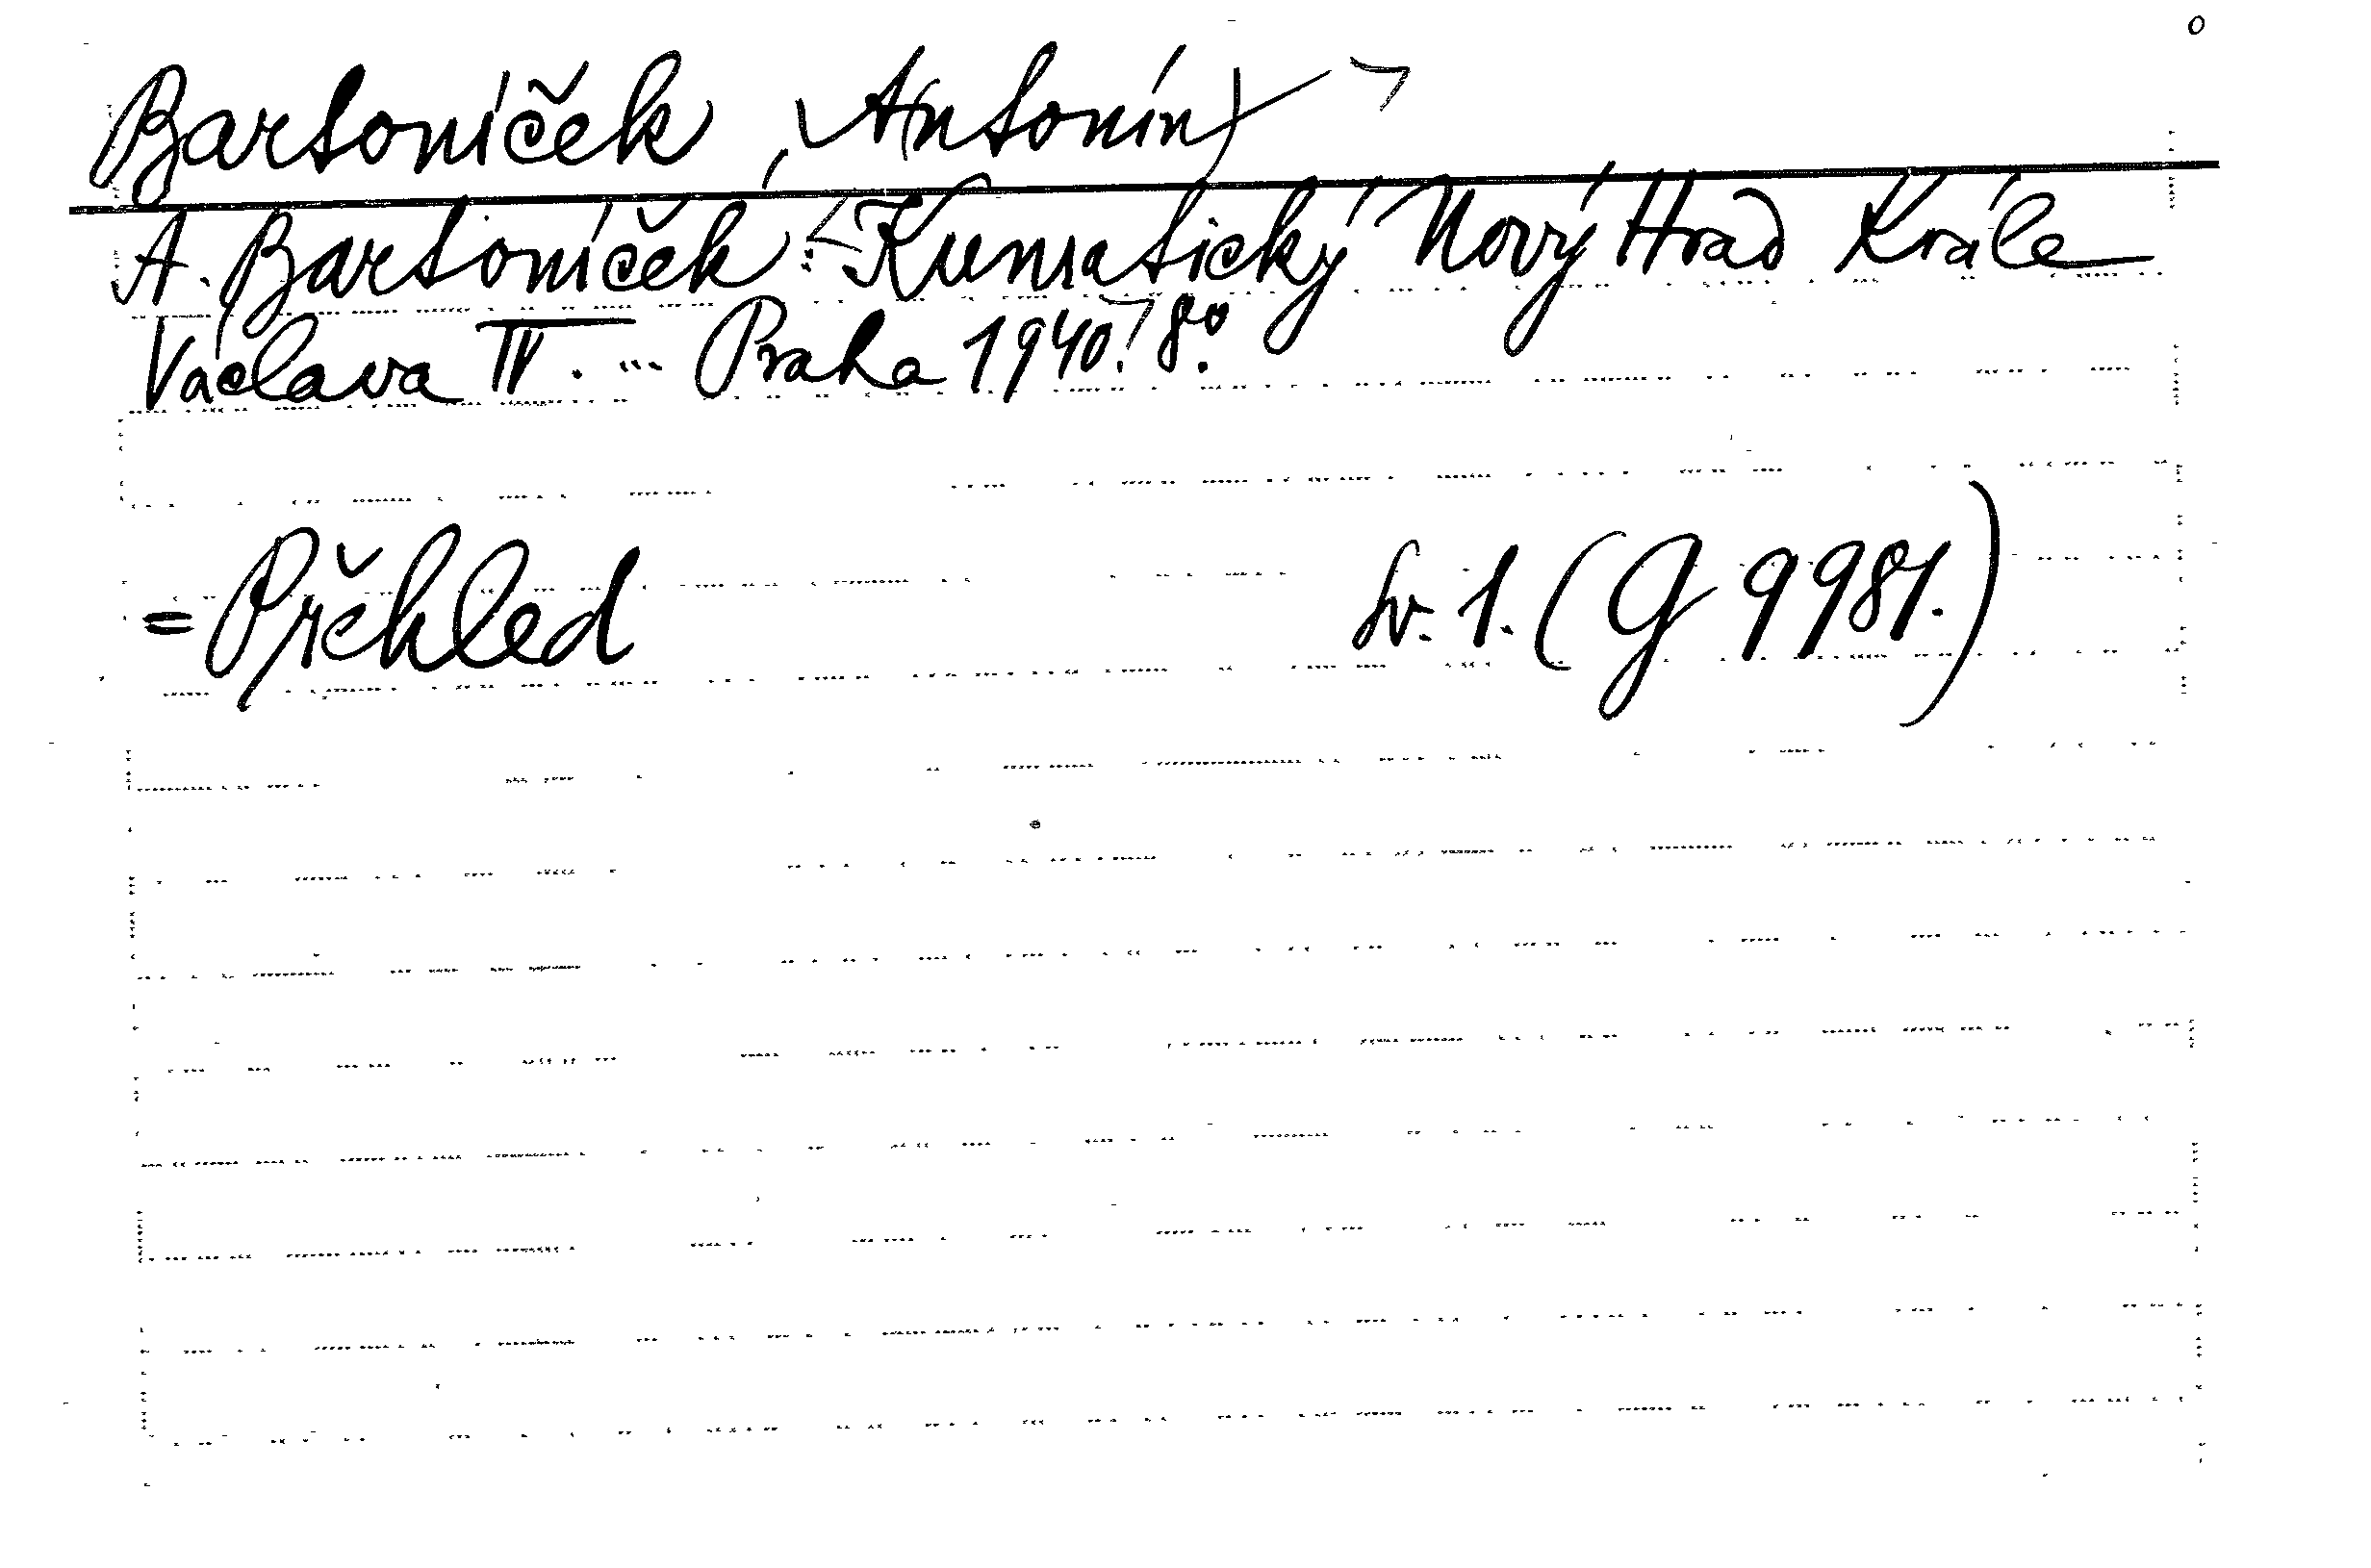 Bartoníček, Antonín
A. Bartoníček: Kunratický Nový Hrad Krále
Václava IV. ... Praha 1940. 8°.
= Přehled Sv. 1. (G 9981.)